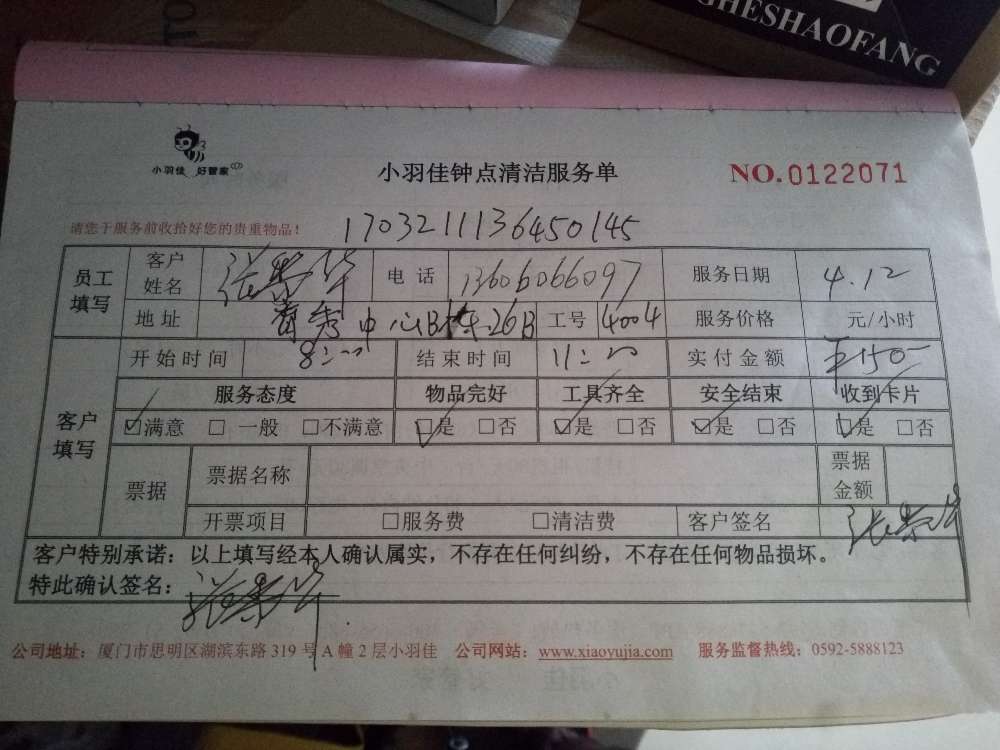 GHESHAOFANG
小羽佳 好管家
小羽佳钟点清洁服务单
NO.0122071
请您于服务前收拾好您的贵重物品!
1703211136450145
员工填写 客户姓名 张 华 电话 13606066097 服务日期 4.12
地址 青秀中心B栋26B 工号 4004 服务价格 元/小时
客户填写 开始时间 8:00 结束时间 11:00 实付金额 ¥150-
服务态度 物品完好 工具齐全 安全结束 收到卡片
☑满意 □ 一般 □不满意 ☑是 □否 ☑是 □否 ☑是 □否 ☑是 □否
票据 票据名称 票据金额
开票项目 □服务费 □清洁费 客户签名
客户特别承诺:以上填写经本人确认属实,不存在任何纠纷,不存在任何物品损坏。
特此确认签名:
公司地址:厦门市思明区湖滨东路 319 号 A 幢 2 层小羽佳 公司网站:www.xiaoyujia.com 服务监督热线:0592-5888123